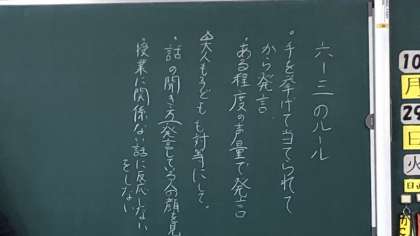 六ー三のルール
・手を挙げて当てられて
から発言。
・ある程度の声量で発言
大人も子どもも対等にして。
・話の聞き方発言している人の顔を見
・授業に関係ない話に反応しない
をしない
10
月
29
日
火
日直